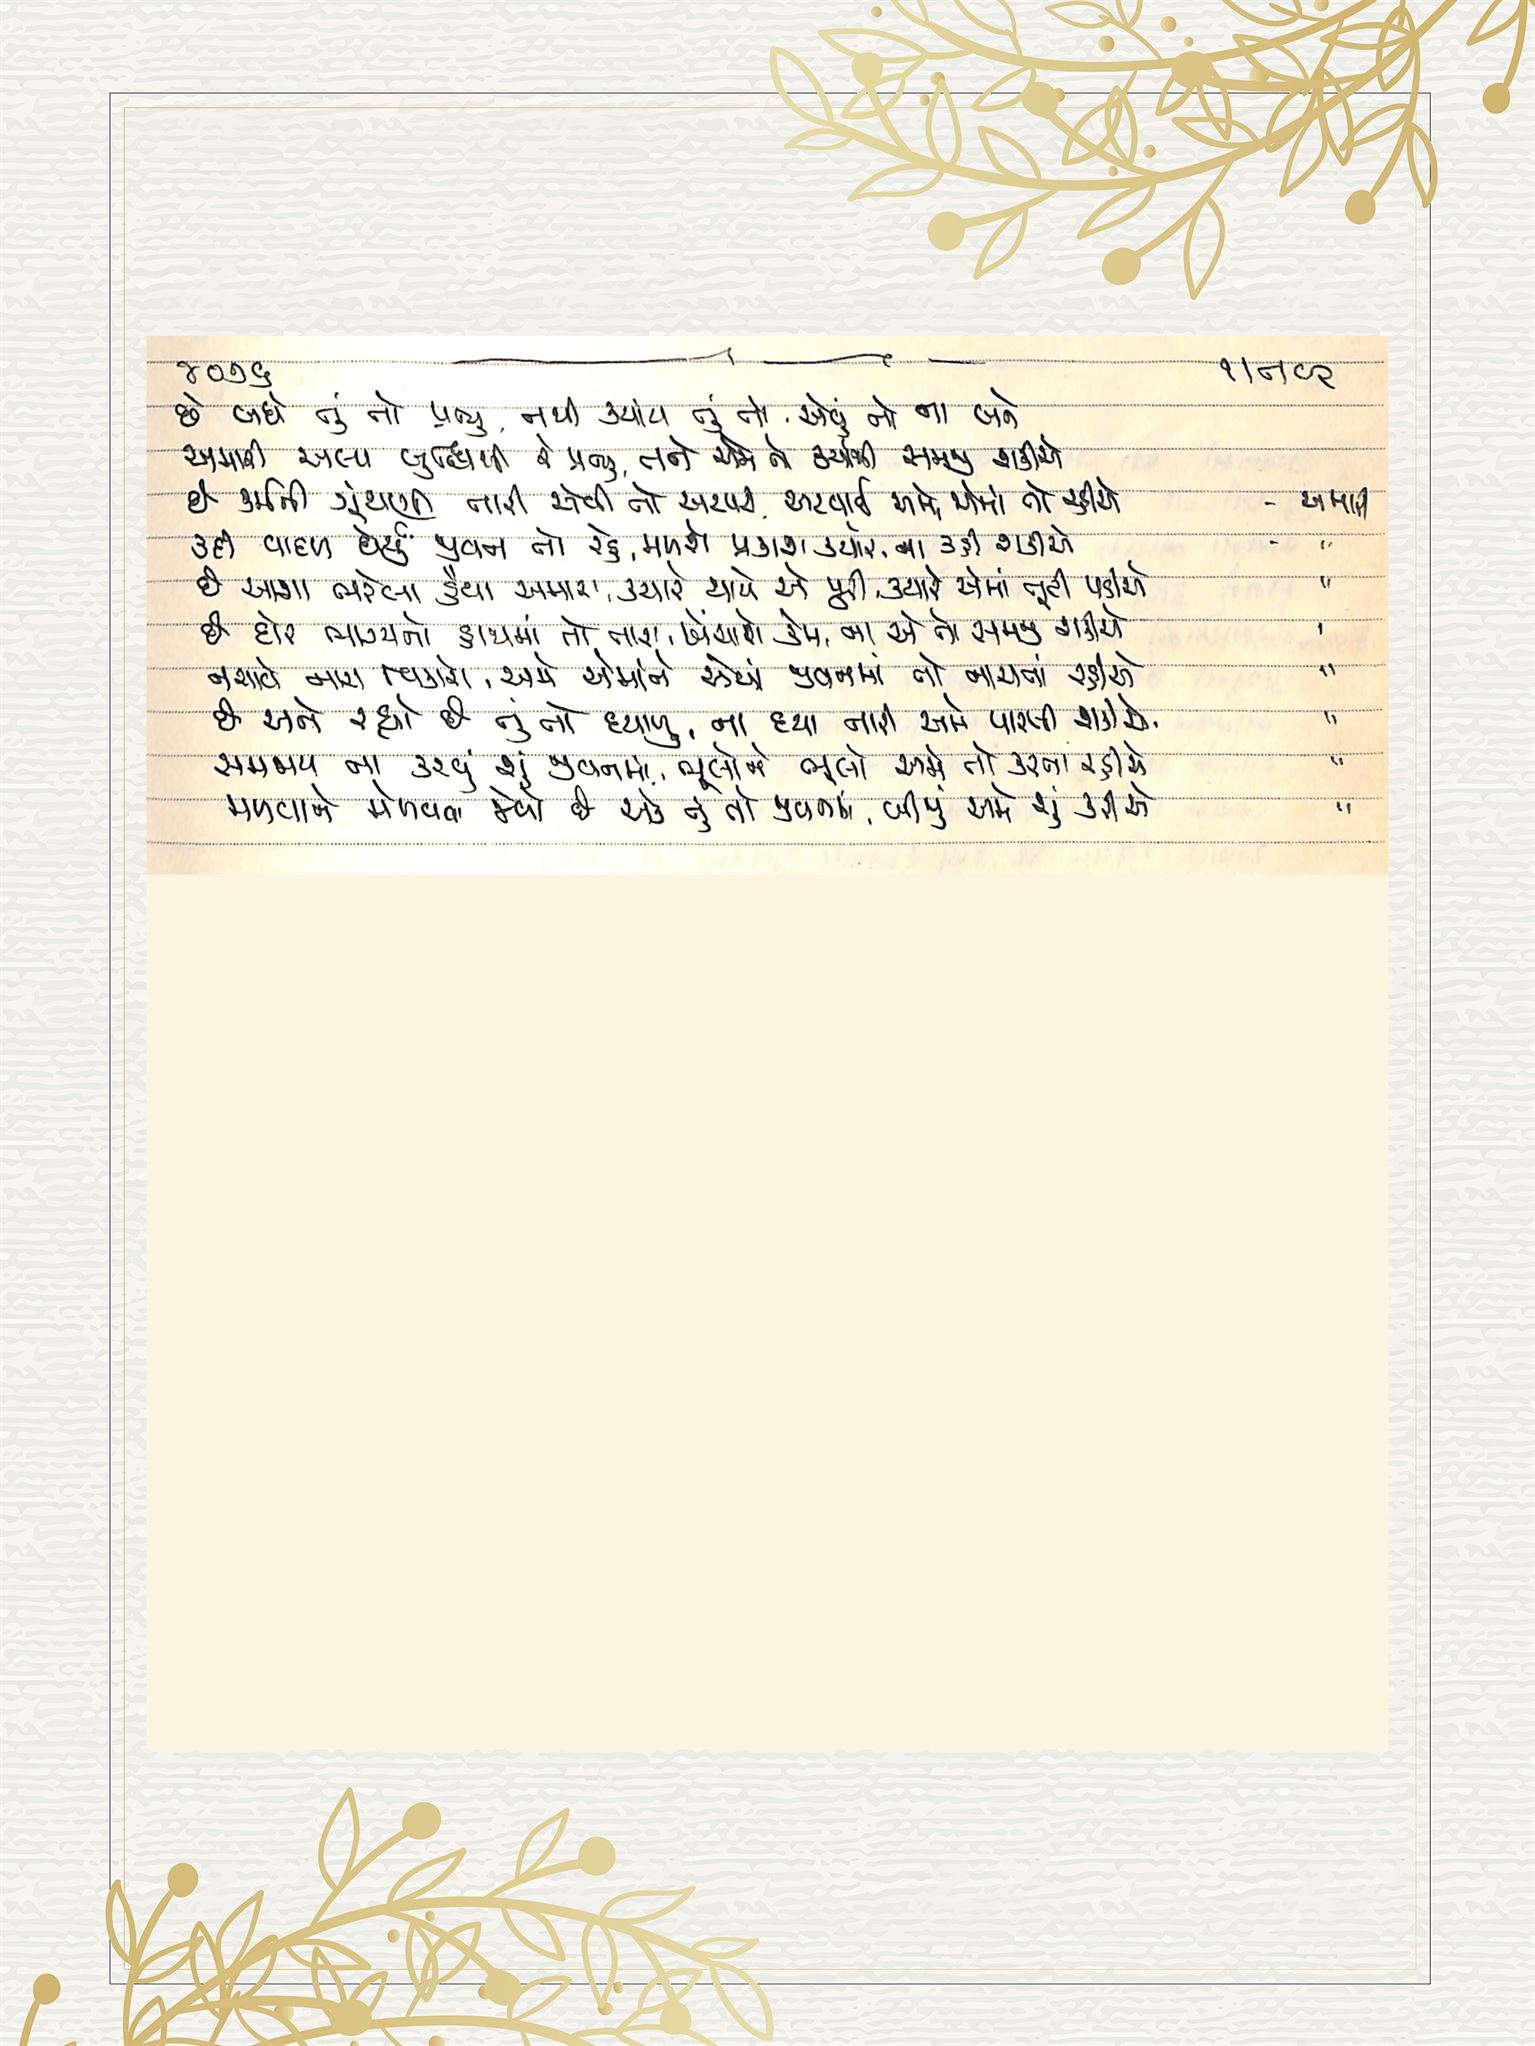 ૪૦૭૬ ૧/નવ્ર
છે બધે તું તો પ્રભુ, નથી ક્યાંય તું તો, એવું તો ના બને
અમારી અલ્પ બુદ્ધિથી રે પ્રભુ, તને અમે તો ક્યાંથી સમજી શકીએ
છે કર્મની ગૂંથણી તારી એવી તો અટપટી, અટવાઈ અમે એમાં તો જઈએ - અમારી
કદી વાદળ ઘેર્યું જીવન તો રહે, મળશે પ્રકાશ ક્યારે, ના કહી શકીએ - "
છે આશા ભરેલા હૈયા અમારા, ક્યારે થાયે એ પૂરી, ક્યારે એમાં તૂટી પડીએ "
છે દોર ભાગ્યનો હાથમાં તો તારા, ખેંચાશે કેમ, ના એ તો સમજી શકીએ '
નચાવે નાચ વિકારો, અમે એમાંને એમાં જીવનમાં તો નાચતાં રહીએ "
છે અને રહ્યો છે તું તો દયાળુ, ના દયા તારી અમે પારખી શકીએ. "
સમજાય ના કરવું શું જીવનમાં, ભૂલોને ભૂલો અમે તો કરતા રહીએ "
મળવાને મેળવવા જેવો છે એક તું તો જીવનમાં, બીજું અમે શું કરીએ "